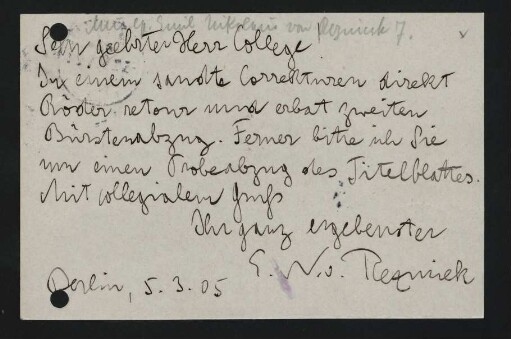 Emil Nikolaus von Reznicek
Sehr geehrter Herr College!
In einem sandte Correkturen direkt
Röder retour und erbat zweiten
Bürstenabzug. Ferner bitte ich Sie
um einen Probeabzug des Titelblattes.
Mit collegialem Gruß
Ihr ganz ergebenster
E. N. v. Reznicek
Berlin, 5.3.05